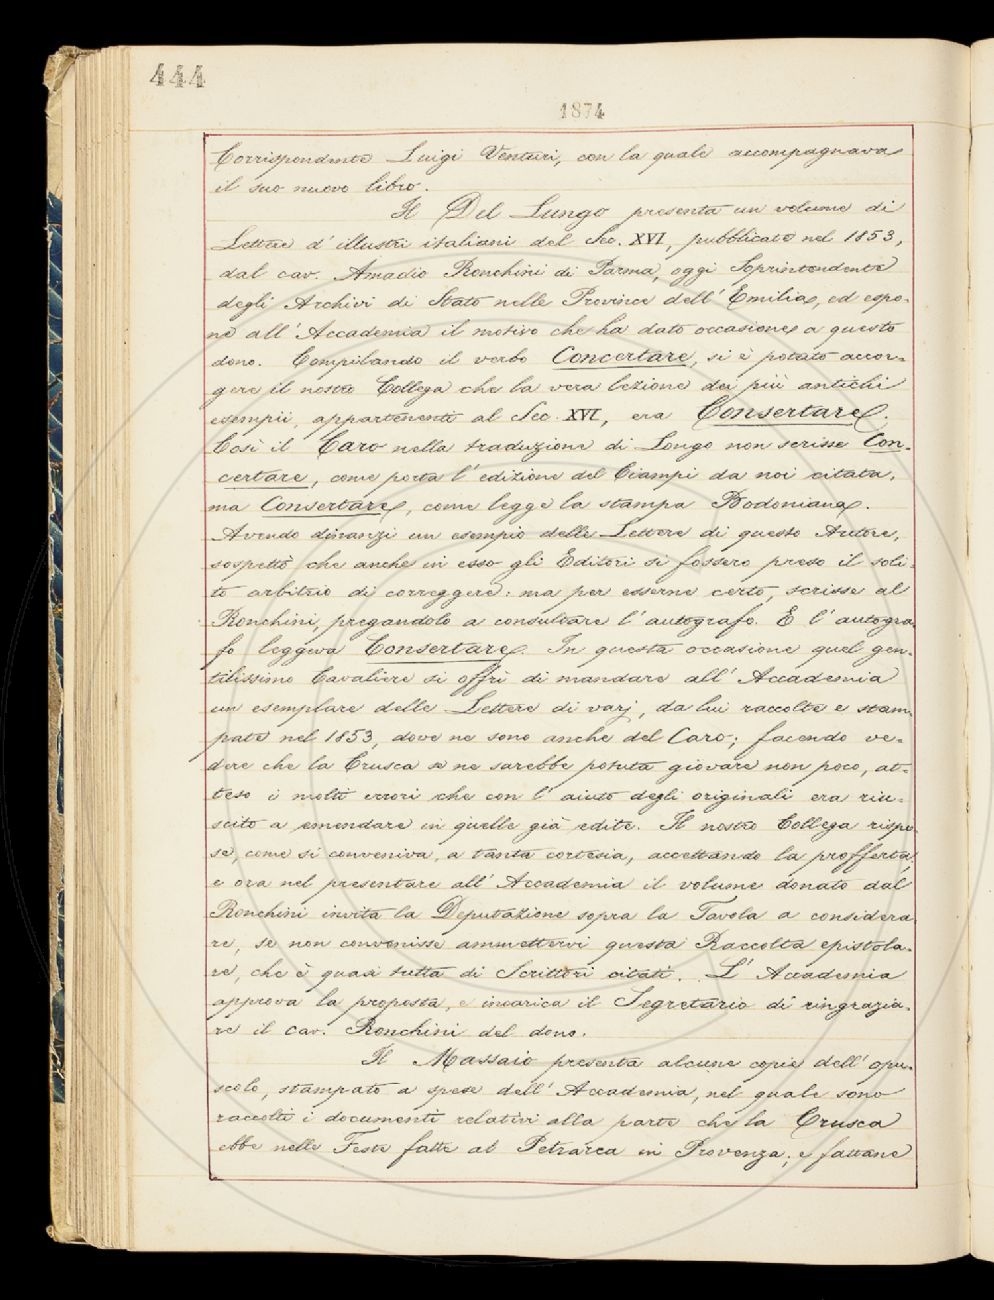 444
1874
Corrispondente Luigi Venturi, con la quale accompagnava
il suo nuovo libro.
Il Del Lungo presenta un volume di
Lettere d'illustri italiani del Sec. XVI, pubblicato nel 1853,
dal cav. Amadio Ronchini di Parma, oggi Soprintendente
degli Archivi di Stato nelle Province dell'Emilia, ed espo-
ne all'Accademia il motivo che ha dato occasione a questo
dono. Compilando il verbo Concertare, si è potuto accor-
gere il nostro Collega che la vera lezione dei più antichi
esempii, appartenenti al Sec. XVI, era Consertare.
Così il Caro nella traduzione di Longo non scrisse Con-
certare, come porta l'edizione del Ciampi da noi citata,
ma Consertare, come legge la stampa Bodoniana.
Avendo dinanzi un esempio delle Lettere di questo Autore,
sospettò che anche in esso gli Editori si fossero preso il soli-
to arbitrio di correggere: ma per esserne certo, scrisse al
Ronchini, pregandolo a consultare l'autografo. E l'autogra-
fo leggeva Consertare. In questa occasione quel gen-
tilissimo Cavaliere si offrì di mandare all'Accademia
un esemplare delle Lettere di varj, da lui raccolte e stam-
pate nel 1853, dove ne sono anche del Caro; facendo ve-
dere che la Crusca se ne sarebbe potuta giovare non poco, at-
teso i molti errori che con l'aiuto degli originali era riu-
scito a emendare in quelle già edite. Il nostro Collega rispo-
se, come si conveniva, a tanta cortesia, accettando la profferta,
e ora nel presentare all'Accademia il volume donato dal
Ronchini invita la Deputazione sopra la Tavola a considera-
re, se non convenisse ammettervi questa Raccolta epistola-
re, che è quasi tutta di Scrittori citati. L'Accademia
approva la proposta, e incarica il Segretario di ringrazia-
re il cav. Ronchini del dono.
Il Massaio presenta alcune copie dell'opu-
scolo, stampato a spese dell'Accademia, nel quale sono
raccolti i documenti relativi alla parte che la Crusca
ebbe nelle Feste fatte al Petrarca in Provenza; e fattane